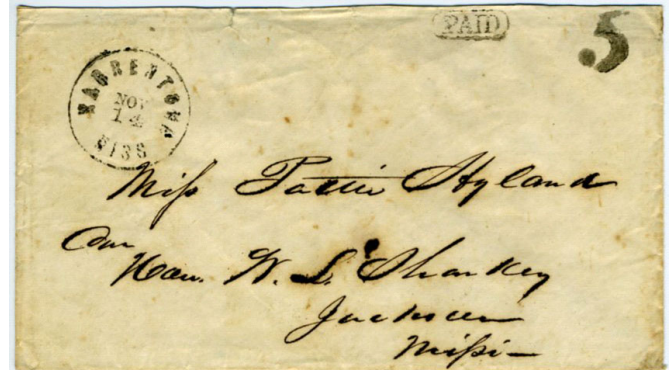 PAID
5
WARRENTON
NOV
14
MISS
Miss Pattie Hyland
Care
Hon. W. L. Sharkey
Jackson
Missi–